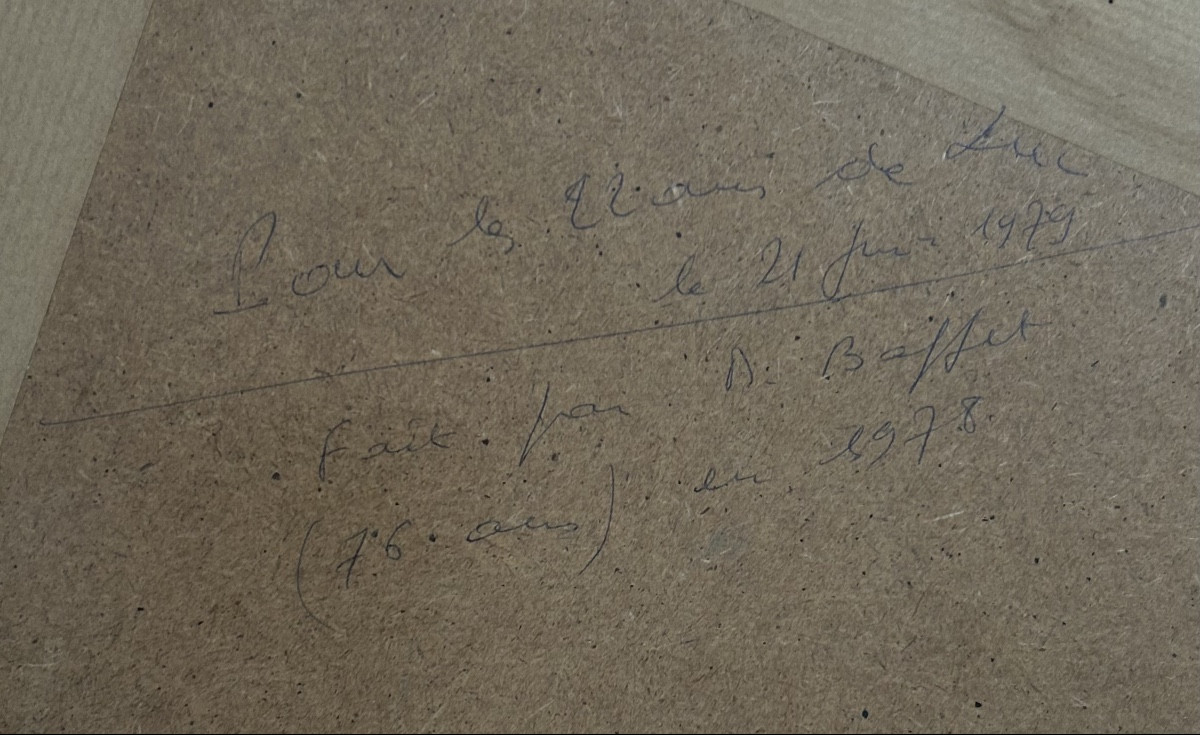 Pour les 22 ans de Luc
le 21 Juin 1979
Fait par A. Baffet
(76 ans) en 1978